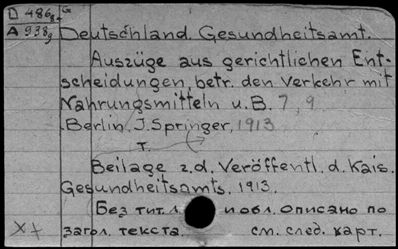 D 486/8 G
A 938/9
Deutschland. Gesundheitsamt.
Auszüge aus gerichtlichen Ent-
scheidungen, betr. den Verkehr mit
Nahrungsmitteln u. B. 7, 9
Berlin, J. Springer, 1913
т.
Beilage z. d. Veröffentl. d. Kais.
Gesundheitsamts. 1913.
Без тит. л. и обл. Описано по
загол. текста. см. след. карт.